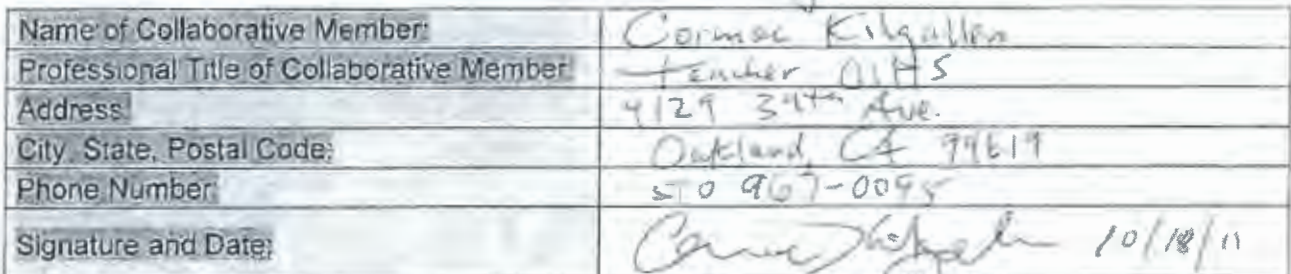 Name of Collaborative Member: Cormac Kilgallen
Professional Title of Collaborative Member: teacher OIHS
Address: 4129 39th Ave.
City, State, Postal Code: Oakland, CA 94619
Phone Number: 510 967-0095
Signature and Date: 10/18/11